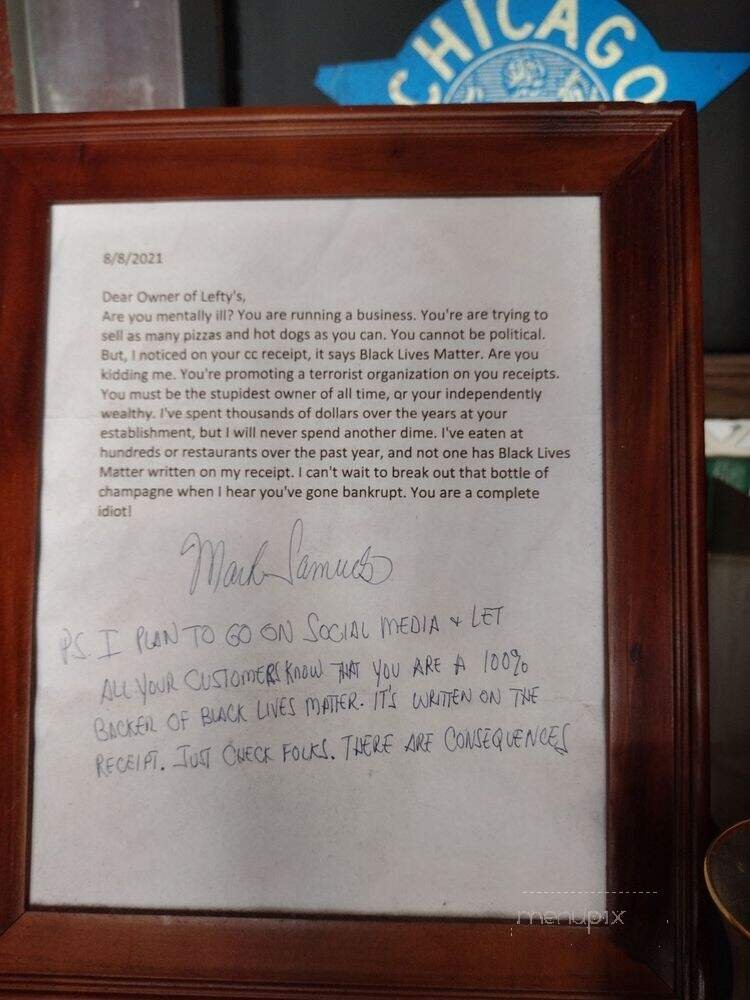 CHICAGO
8/8/2021
Dear Owner of Lefty's,
Are you mentally ill? You are running a business. You're are trying to
sell as many pizzas and hot dogs as you can. You cannot be political.
But, I noticed on your cc receipt, it says Black Lives Matter. Are you
kidding me. You're promoting a terrorist organization on you receipts.
You must be the stupidest owner of all time, or your independently
wealthy. I've spent thousands of dollars over the years at your
establishment, but I will never spend another dime. I've eaten at
hundreds or restaurants over the past year, and not one has Black Lives
Matter written on my receipt. I can't wait to break out that bottle of
champagne when I hear you've gone bankrupt. You are a complete
idiot!
Mark Samuels
PS. I PLAN TO GO ON SOCIAL MEDIA & LET
ALL YOUR CUSTOMERS KNOW THAT YOU ARE A 100%
BACKER OF BLACK LIVES MATTER. IT'S WRITTEN ON THE
RECEIPT. JUST CHECK FOLKS. THERE ARE CONSEQUENCES
menupix